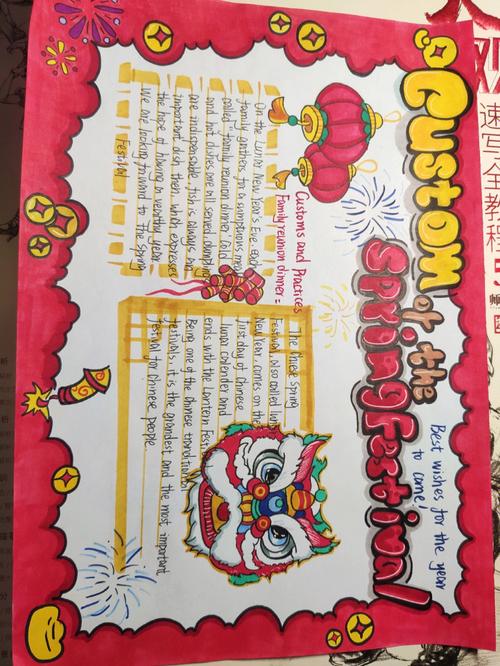 Custom of the
Spring Festival
Best wishes for the year
to come!
Customs and Practices
Family reunion dinner:
On the Lunar New Year's Eve, each
family gathers for a sumptuous meal
called "family reunion dinner". Cold
and hot dishes are all served. dumplings
are indispensable. fish is always an
important dish them, which expresses
the hope of having a wealthy year.
We are looking forward to the spring
Festival
The Chinese Spring
Festival, also called
New Year, comes on the
first day of Chinese
lunar calender and
ends with the Lantern Festi
Being one of the Chinese traditional
festivals, it is the grandest and the most important
festival for Chinese people.
速写全教程